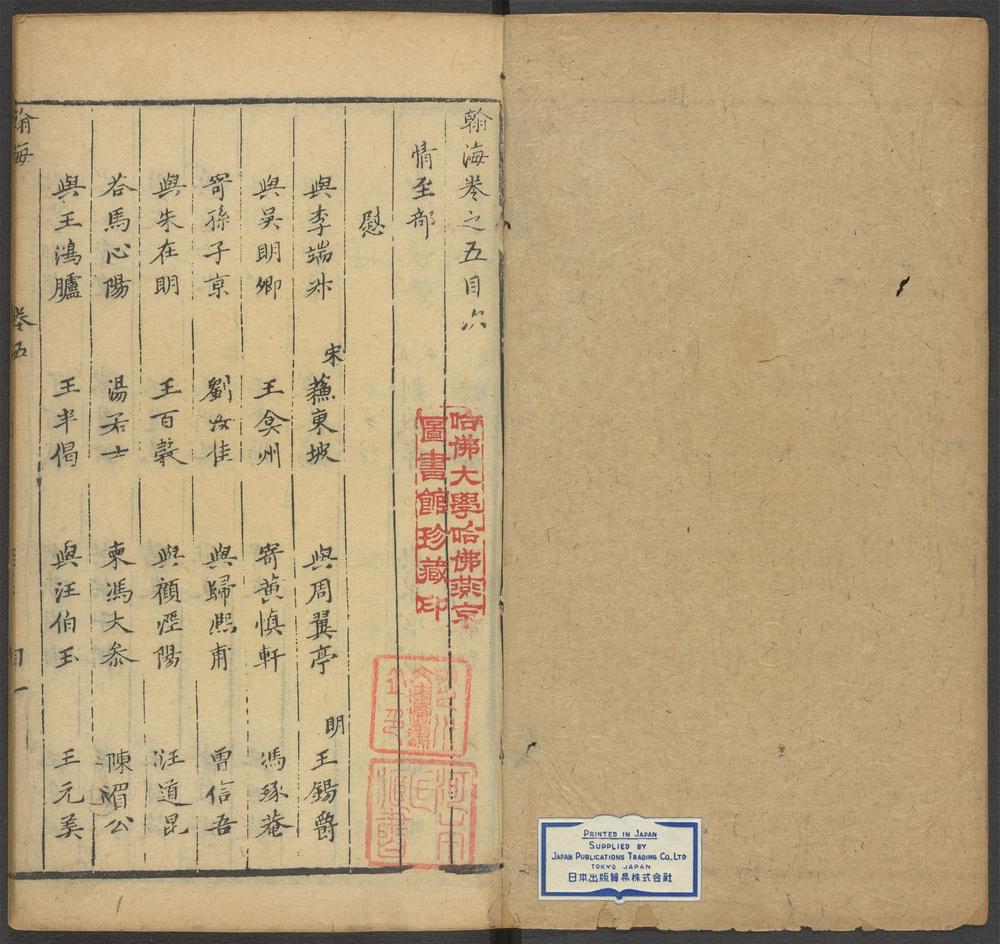 翰海卷之五目次
情至部
慰
與李端叔 宋 蘓東坡 與周翼亭 明 王錫爵
與吳明卿 王弇州 寄黄慎軒 馮琢菴
寄孫子京 劉汝佳 與歸熙甫 曾信吾
與朱在明 王百榖 與顧涇陽 汪道昆
荅馬心陽 湯若士 柬馮大叅 陳眉公
與王鴻臚 王半偈 與汪伯玉 王元美
翰海 卷五 目一
哈佛大學哈佛燕京
圖書館珍藏印
PRINTED IN JAPAN
SUPPLIED BY
JAPAN PUBLICATIONS TRADING CO., LTD
TOKYO JAPAN
日本出版貿易株式会社